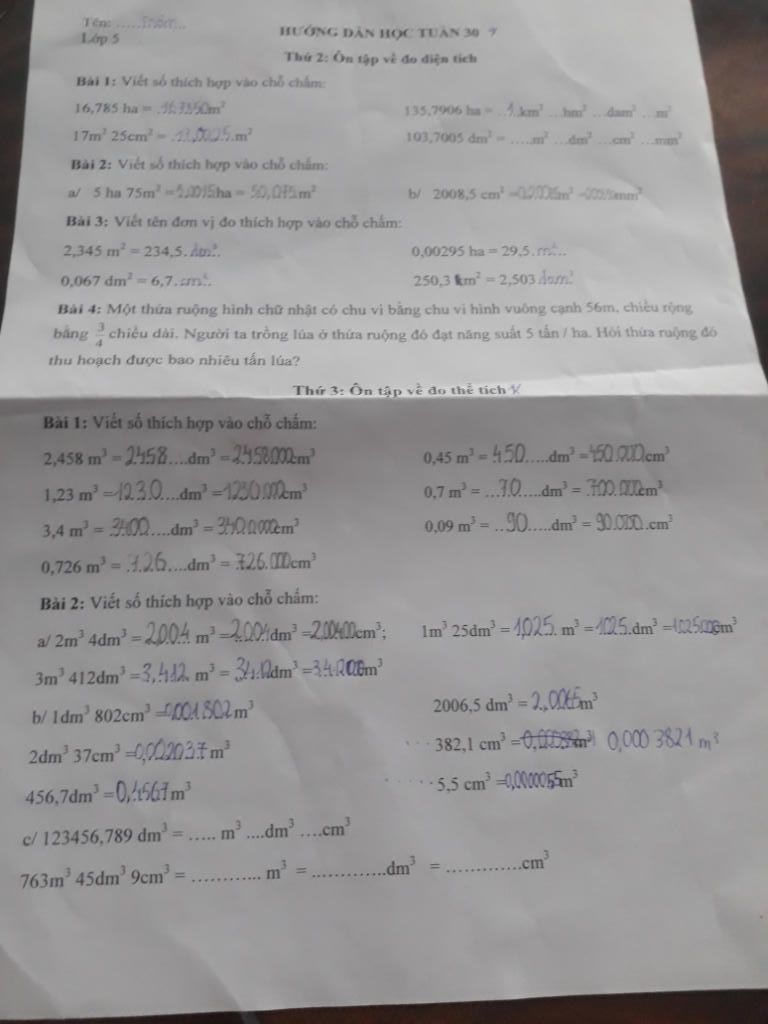 Tên: .....
Lớp 5
HƯỚNG DẪN HỌC TUẦN 30
Thứ 2: Ôn tập về đo diện tích
Bài 1: Viết số thích hợp vào chỗ chấm:
16,785 ha = m² 135,7906 ha = ..1.km² ...hm² ...dam² ...m²
17m² 25cm² = .17,0025.m² 103,7005 dm² = .....m² ...dm² ...cm² ...mm²
Bài 2: Viết số thích hợp vào chỗ chấm:
a/ 5 ha 75m² = 5,0075ha = 50,075 m² b/ 2008,5 cm² = m² = mm²
Bài 3: Viết tên đơn vị đo thích hợp vào chỗ chấm:
2,345 m² = 234,5. dm².. 0,00295 ha = 29,5. m²..
0,067 dm² = 6,7. cm². 250,3 m² = 2,503 dam²
Bài 4: Một thửa ruộng hình chữ nhật có chu vi bằng chu vi hình vuông cạnh 56m, chiều rộng
bằng 3/4 chiều dài. Người ta trồng lúa ở thửa ruộng đó đạt năng suất 5 tấn / ha. Hỏi thửa ruộng đó
thu hoạch được bao nhiêu tấn lúa?
Thứ 3: Ôn tập về đo thể tích
Bài 1: Viết số thích hợp vào chỗ chấm:
2,458 m³ = 2458....dm³ = 2458.000cm³ 0,45 m³ = 450.....dm³ = 450.000cm³
1,23 m³ = 1230....dm³ = 1230.000cm³ 0,7 m³ = ...70....dm³ = .700.000cm³
3,4 m³ = 3400....dm³ = 340.0000cm³ 0,09 m³ = ..90.....dm³ = 90.000.cm³
0,726 m³ = .726....dm³ = 726.000cm³
Bài 2: Viết số thích hợp vào chỗ chấm:
a/ 2m³ 4dm³ = 2,004. m³ = 2.004dm³ = cm³; 1m³ 25dm³ = 1,025. m³ = 1025.dm³ = 1.025000cm³
3m³ 412dm³ = 3,412. m³ = dm³ = cm³
b/ 1dm³ 802cm³ = 0,001802 m³ 2006,5 dm³ = 2,0065m³
2dm³ 37cm³ = 0,002037 m³ 382,1 cm³ = 0,0003821 m³
456,7dm³ = 0,4567 m³ 5,5 cm³ = 0,0000055m³
c/ 123456,789 dm³ = ..... m³ ....dm³ ....cm³
763m³ 45dm³ 9cm³ = ........... m³ = ............dm³ = ............cm³